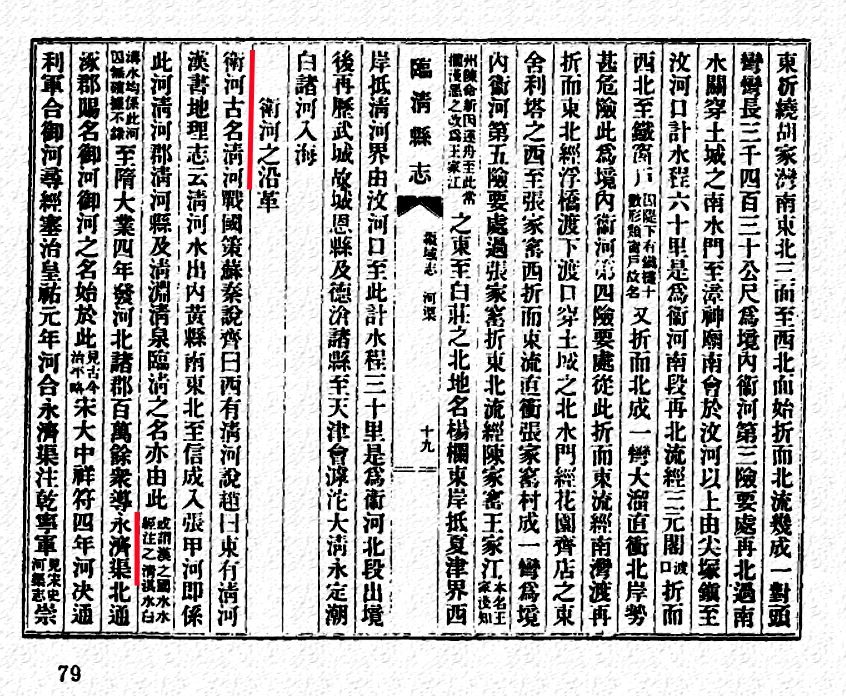 東折繞胡家灣南東北三面至西北面始折而北流幾成一對頭
彎彎長三千四百三十公尺爲境內衞河第三險要處再北過南
水關穿土城之南水門至漳神廟南會於汶河以上由尖塚鎭至
汶河口計水程六十里是爲衞河南段再北流經三元閣渡口折而
西北至鐵窗戶因隄下有鐵櫺十數形類窗戶故名又折而北成一彎大溜直衝北岸勢
甚危險此爲境內衞河第四險要處從此折而東流經南灣渡再
折而東北經浮橋渡下渡口穿土城之北水門經花園齊店之東
舍利塔之西至張家窰西折而東流直衝張家窰村成一彎爲境
內衞河第五險要處過張家窰折東北流經陳家窰王家江本名王家淺知
州陳命新因運舟至此常擱淺惡之改爲王家江之東至白莊之北地名楊欄東岸抵夏津界西
臨淸縣志
疆域志 河渠
十九
岸抵淸河界由汶河口至此計水程三十里是爲衞河北段出境
後再歷武城故城恩縣及德滄諸縣至天津會滹沱大淸永定潮
白諸河入海
衞河之沿革
衞河古名淸河戰國策蘇秦說齊曰西有淸河說趙曰東有淸河
漢書地理志云淸河水出內黃縣南東北至信成入張甲河即係
此河淸河郡淸河縣及淸淵淸泉臨淸之名亦由此或謂漢之國水水經注之淸漢水白
溝水均係此河因無確據不錄至隋大業四年發河北諸郡百萬餘衆導永濟渠北通
涿郡賜名御河御河之名始於此見古今治平略宋大中祥符四年河決通
利軍合御河尋經塞治皇祐元年河合永濟渠注乾寧軍見宋史河渠志崇
79